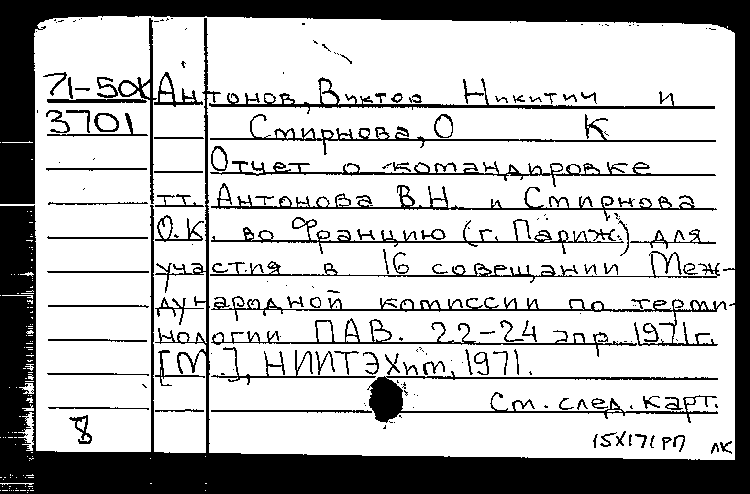 71-50К Антонов, Виктор Никитич и
3701 Смирнова, О К
Отчет о командировке
тт. Антонова В.Н. и Смирнова
О.К. во Францию (г. Париж.) для
участия в 16 совещании Меж-
дународной комиссии по терми-
нологии ПАВ. 22-24 апр 1971г.
[М.], НИИТЭХим, 1971.
См. след. карт.
8
15X171РП ЛК